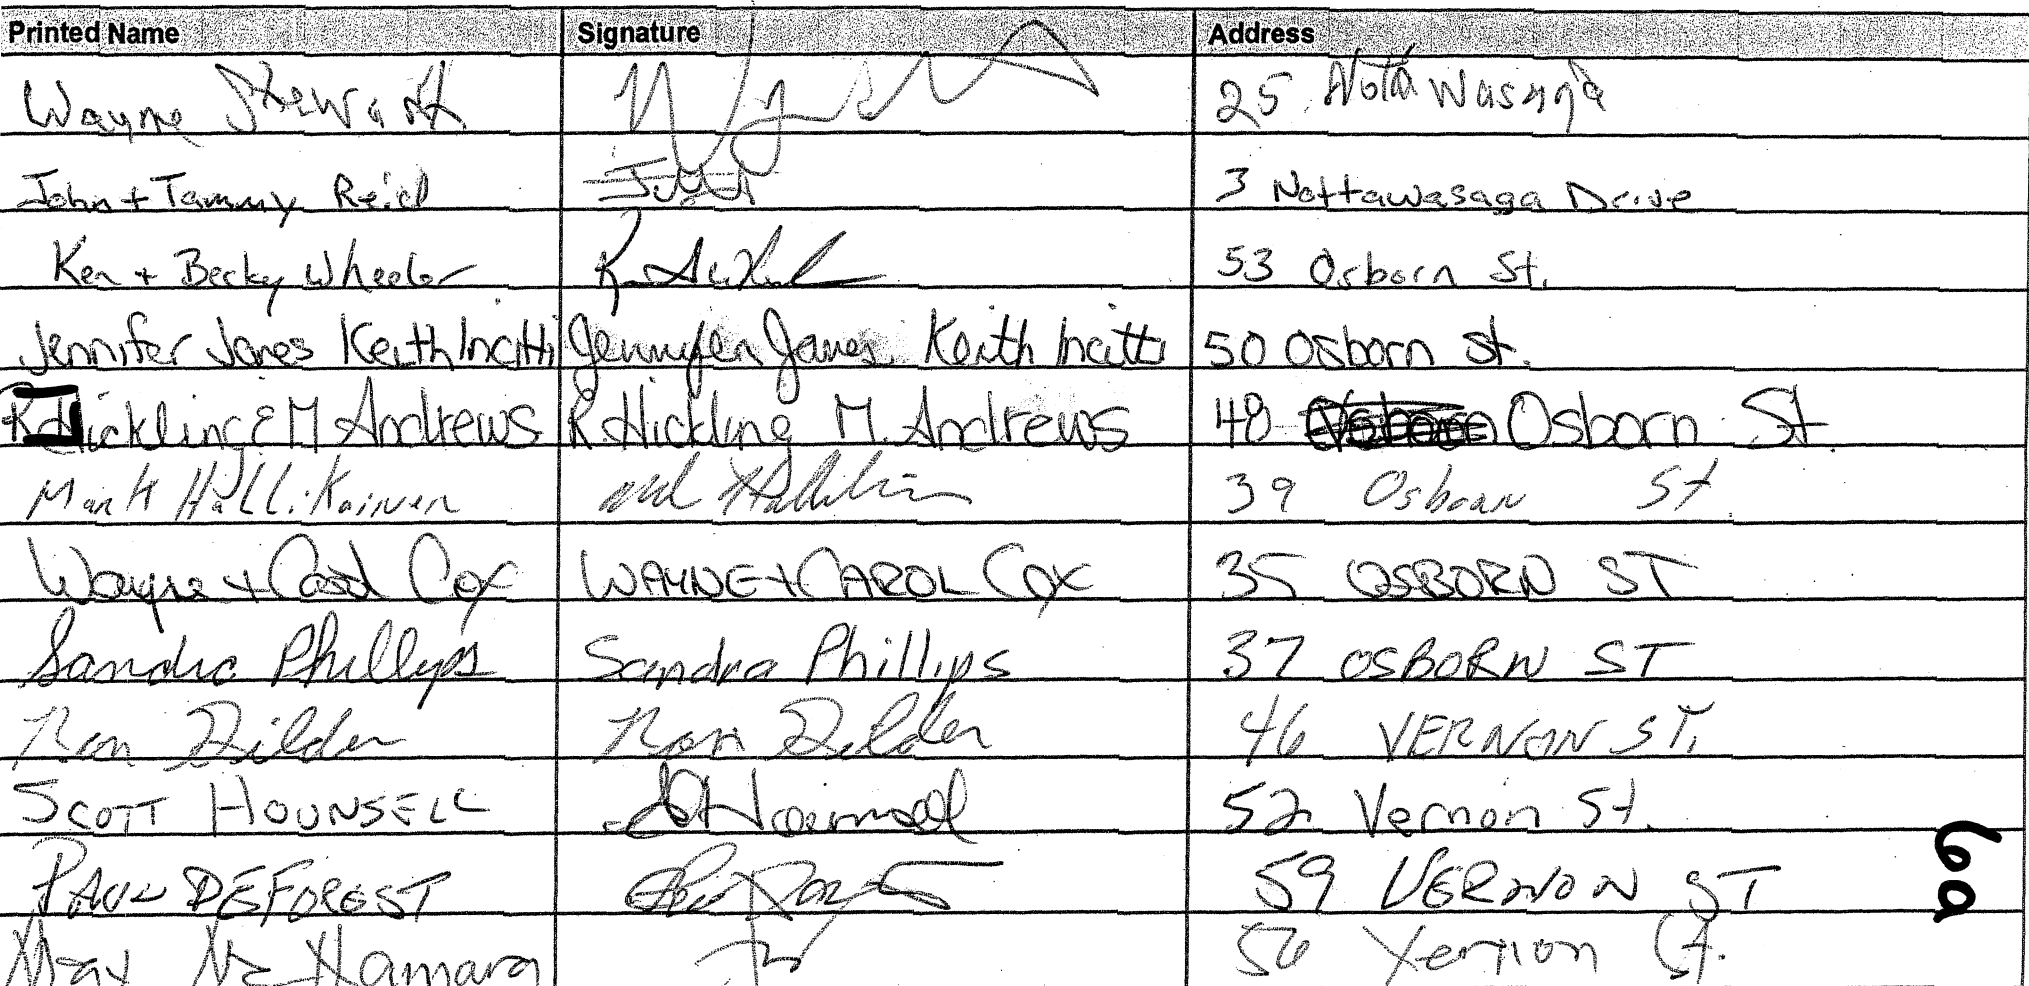 Printed Name Signature Address
Wayne Stewart 25 Notawasaga
John + Tammy Reid 3 Nottawasaga Drive
Ken + Becky Wheeler 53 Osborn St.
Jennifer Jones Keith Incitti Jennifer Jones Keith Incitti 50 Osborn St.
R Hickling & M Andrews R Hickling M. Andrews 48 Osborn St.
Mark Hallikainen 39 Osborn St
Wayne + Carol Cox WAYNE + CAROL COX 35 OSBORN ST
Sandra Phillips Sandra Phillips 37 OSBORN ST
Ron Ron 46 VERNON ST.
SCOTT HOUNSELL 52 Vernon St.
PAUL DEFOREST 59 VERNON ST
Max McNamara 56 Vernon St.
6a